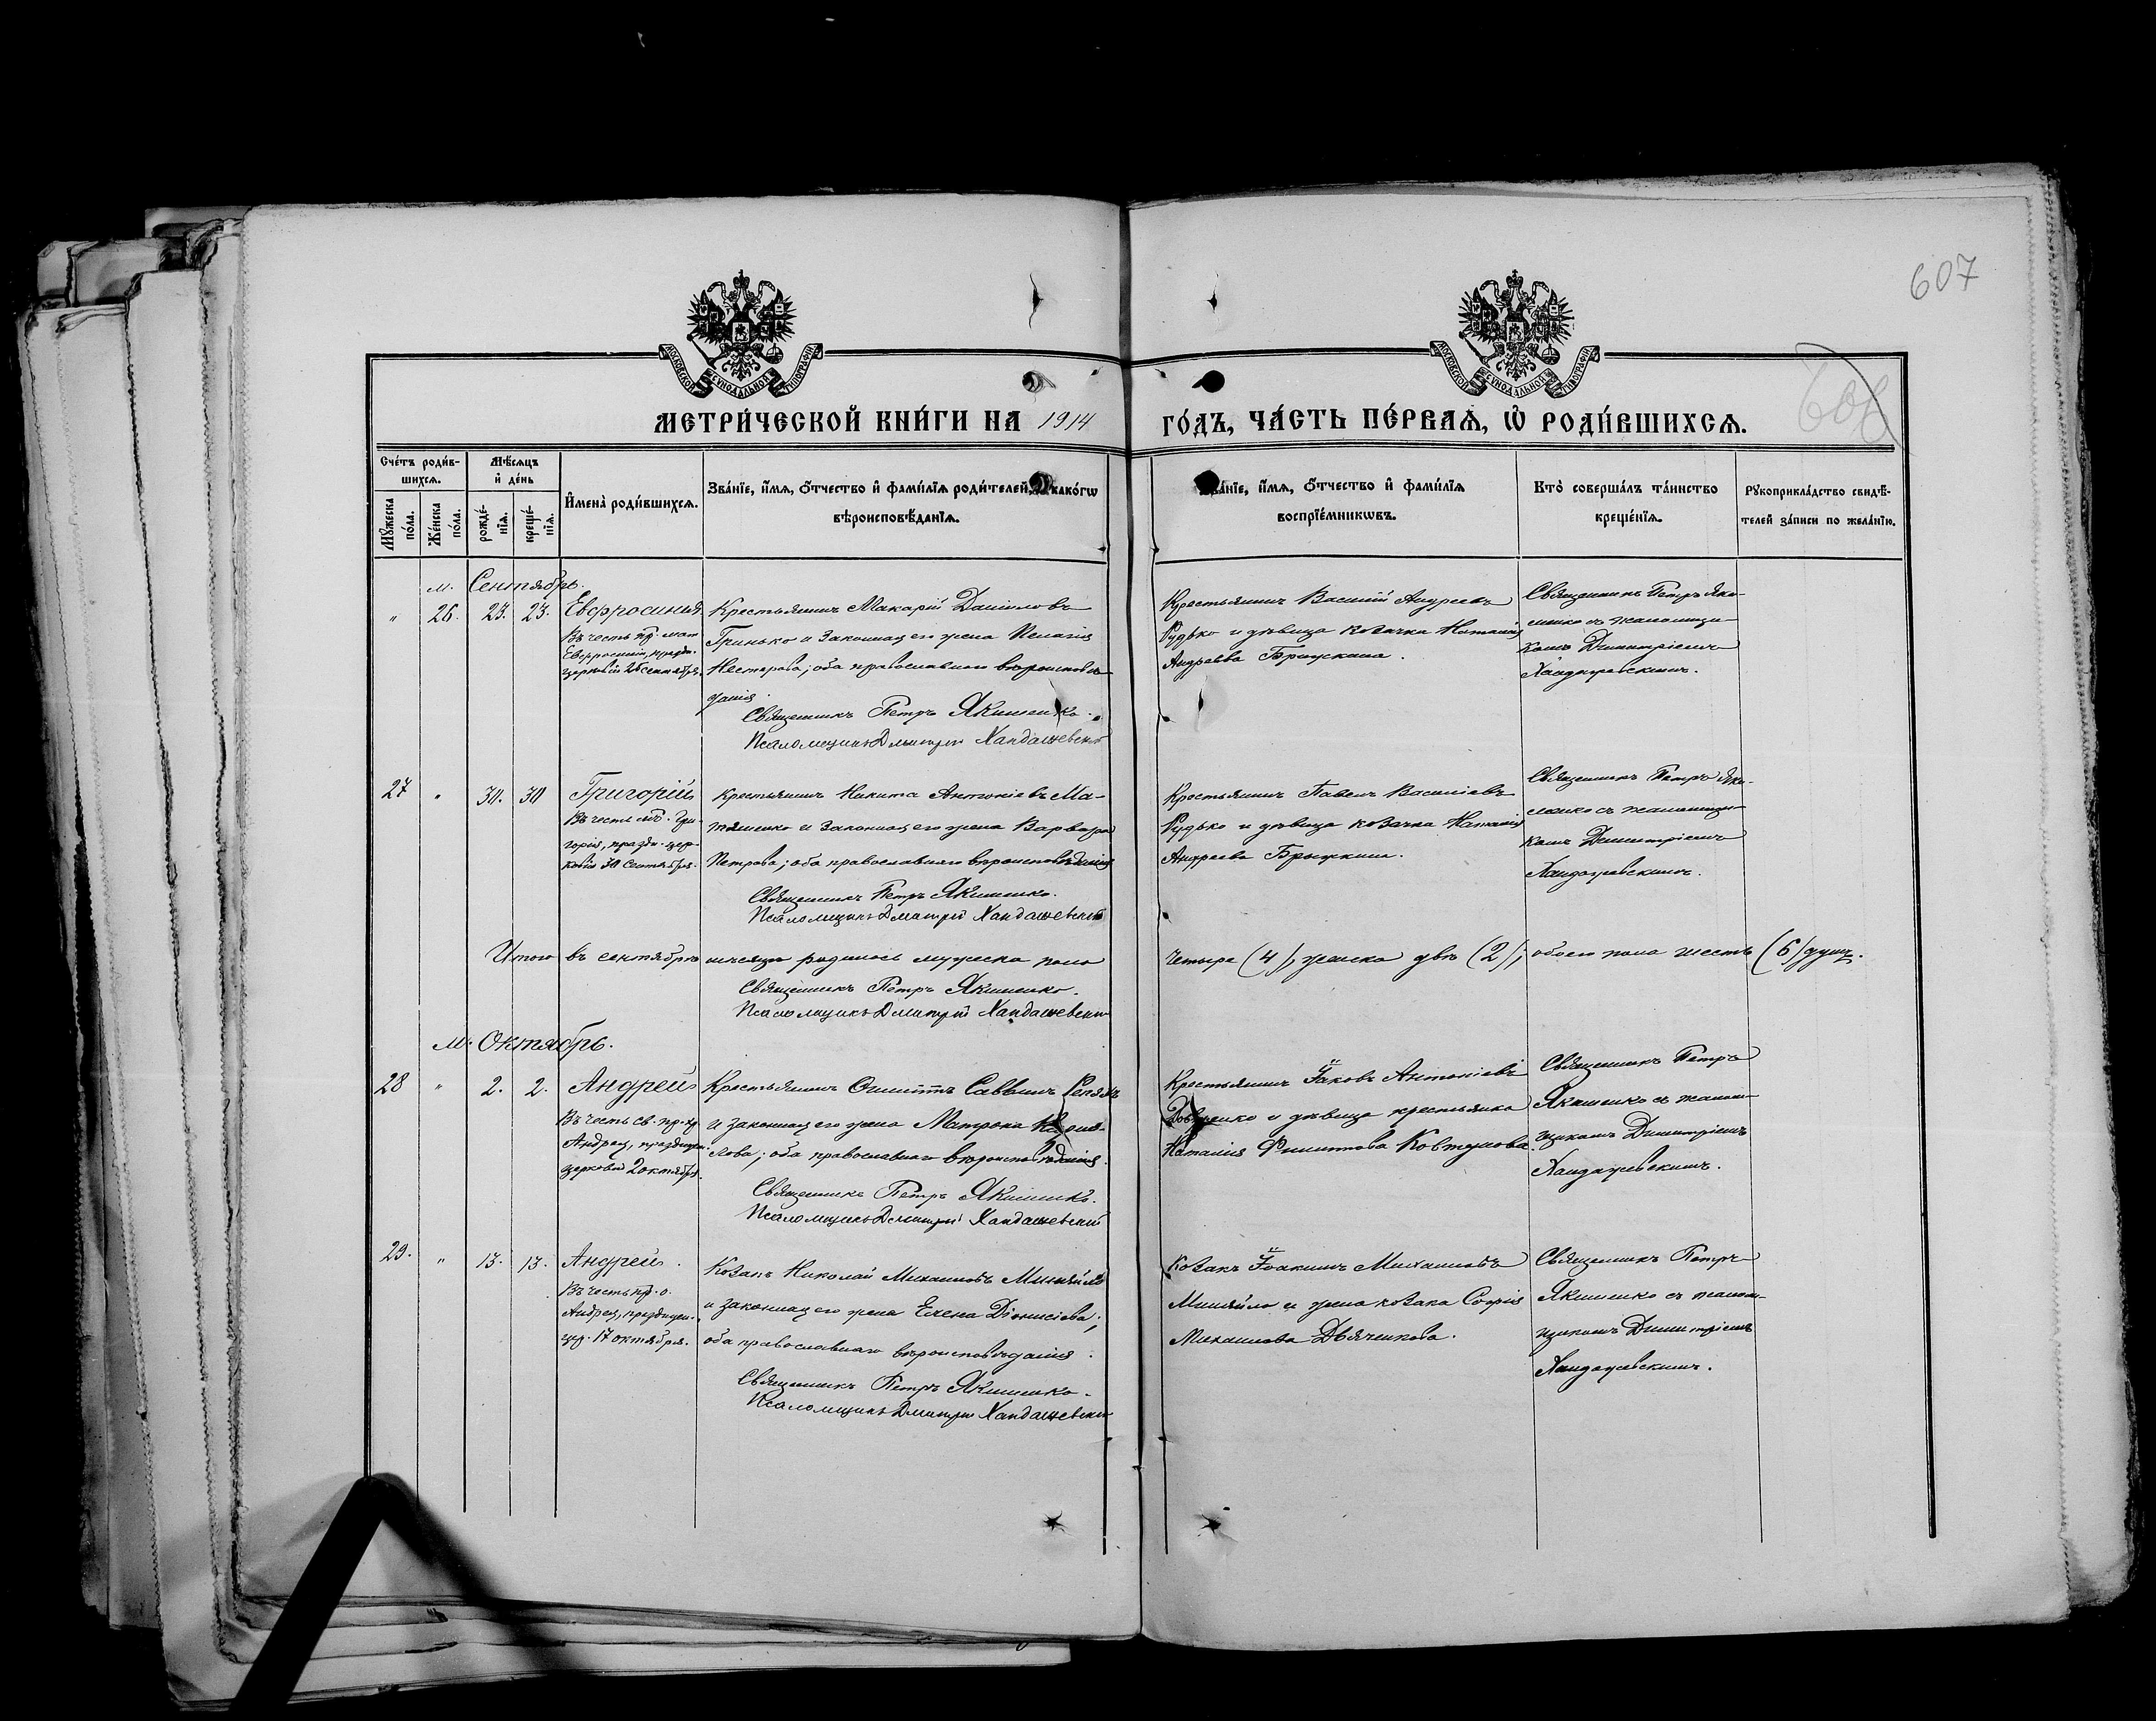 607
608
МОСКОВСКОЙ СѴНОДАЛЬНОЙ ТИПОГРАФІИ
МОСКОВСКОЙ СѴНОДАЛЬНОЙ ТИПОГРАФІИ
МЕТРИ́ЧЕСКОЙ КНИ́ГИ НА 1914 ГО́ДЪ, ЧА́СТЬ ПЕ́РВАѦ, Ѡ РОДИ́ВШИХСѦ.
Сче́тъ роди́в-
шихсѧ.
Мѣ́сѧцъ
и де́нь
Мꙋ́жеска по́ла.
Же́нска по́ла.
рожде́-
нїѧ.
креще́-
нїѧ.
Имена̀ роди́вшихсѧ.
Зва́нїе, и́мѧ, ѻ́тчество и фами́лїѧ роди́телей, како́гѡ
вѣроисповѣ́данїѧ.
Зва́нїе, и́мѧ, ѻ́тчество и фами́лїѧ
воспрїе́мникѡвъ.
Кто̀ соверша́лъ та́инство
креще́нїѧ.
Рꙋкоприкла́дство свидѣ́-
телей за́писи по жела́нїю.
м. Сентябрь.
" 26. 23. 23. Евфросинія
Въ честь пр. мат.
Евфросиніи, праздн.
церковію 25 сентября.
Крестьянинъ Макарій Даніиловъ
Гринько и законная его жена Пелагія
Нестерова; оба православнаго вѣроисповѣ-
данія.
Священникъ Петръ Якименко.
Псаломщикъ Дмитрій Хандажевскій
Крестьянинъ Василій Андреевъ
Рудько и дѣвица козачка Наталія
Андреева
Священникъ Петръ Яки-
менко съ псаломщи-
комъ Димитріемъ
Хандажевскимъ.
27 " 30. 30 Григорій
Въ честь св. Гри-
горія, праздн. цер-
ковію 30 Сентября.
Крестьянинъ Никита Антоніевъ Ма-
тяшенко и законная его жена Варвара
Петрова; оба православнаго вѣроисповѣданія
Священникъ Петръ Якименко.
Псаломщикъ Дмитрій Хандажевскій
Крестьянинъ Павелъ Василіевъ
Рудько и дѣвица козачка Наталія
Андреева
Священникъ Петръ Яки-
менко съ псаломщи-
комъ Димитріемъ
Хандажевскимъ.
Итого въ сентябрѣ мѣсяцѣ родилось мужеска пола четыре (4), женска двѣ (2); обоего пола шесть (6) душъ.
Священникъ Петръ Якименко.
Псаломщикъ Дмитрій Хандажевскій
м. Октябрь.
28 " 2. 2. Андрей
Въ честь св.
Андрея, празднуем.
церковію 2 октября.
Крестьянинъ Саввинъ
и законная его жена Матрона
оба православнаго вѣроисповѣданія.
Священникъ Петръ Якименко.
Псаломщикъ Дмитрій Хандажевскій
Крестьянинъ Іаковъ Антоніевъ
и дѣвица крестьянка
Наталія Филиппова Ковтунова.
Священникъ Петръ
Якименко съ псалом-
щикомъ Димитріемъ
Хандажевскимъ.
29. " 13. 13. Андрей.
Въ честь пр.
Андрея, празднуем.
цр. 17 октября.
Козакъ Николай Михаиловъ Миняйло
и законная его жена Елена Діонисіова;
оба православнаго вѣроисповѣданія.
Священникъ Петръ Якименко.
Псаломщикъ Дмитрій Хандажевскій
Козакъ Іоакимъ Михаиловъ
Миняйло и жена козака Софія
Михаилова Дьяченкова.
Священникъ Петръ
Якименко съ псалом-
щикомъ Димитріемъ
Хандажевскимъ.